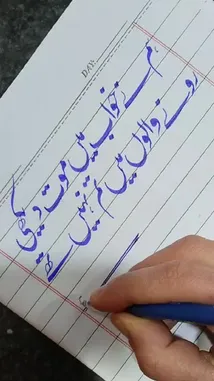 DAY:
ہم نے خواب میں موت دیکھی
رونے والوں میں تم نہیں تھے